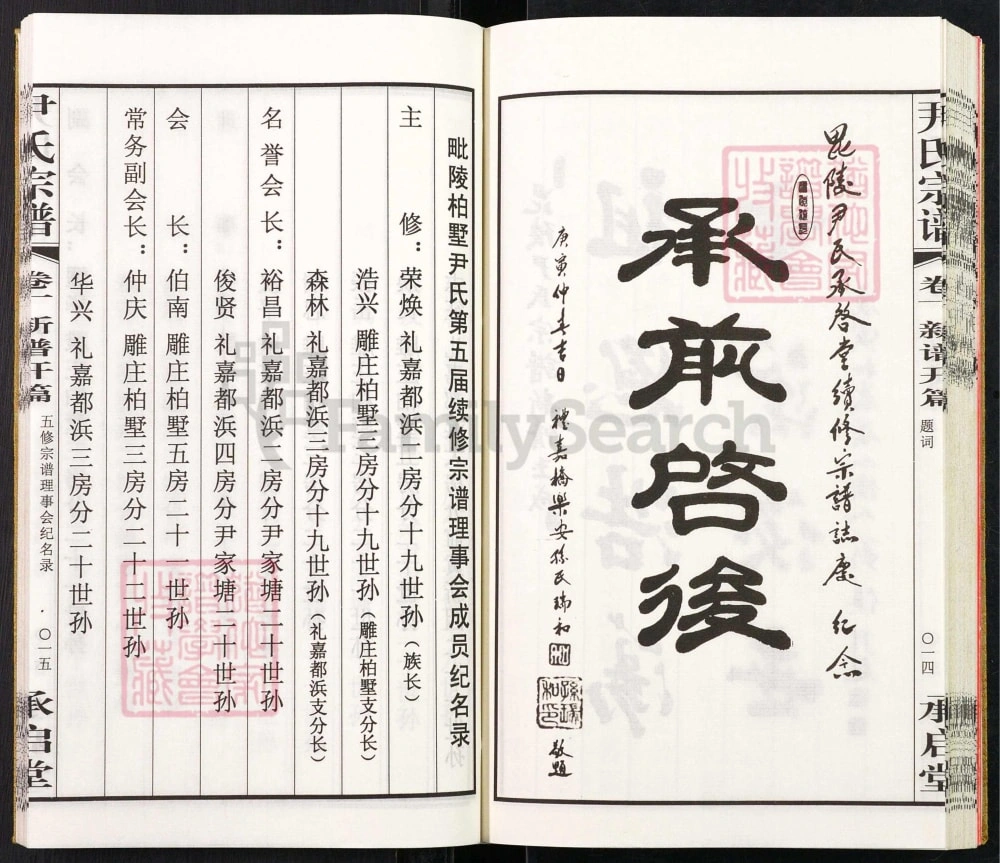 尹氏宗谱
卷一
新谱开篇
题词
〇一四
承启堂
毘陵尹氏承啓堂續修宗譜誌慶 纪念
承前啓後
庚寅仲春吉日 禮嘉橋樂安孫氏瑞和
敬題
毗陵柏墅尹氏第五届续修宗谱理事会成员纪名录
主修：荣焕 礼嘉都浜二房分十九世孙（族长）
浩兴 雕庄柏墅三房分十九世孙（雕庄柏墅支分长）
森林 礼嘉都浜三房分十九世孙（礼嘉都浜支分长）
名誉会长：裕昌 礼嘉都浜二房分尹家塘二十世孙
俊贤 礼嘉都浜四房分尹家塘二十世孙
会长：伯南 雕庄柏墅五房二十一世孙
常务副会长：仲庆 雕庄柏墅三房分二十二世孙
华兴 礼嘉都浜三房分二十世孙
尹氏宗谱
卷一
新谱开篇
五修宗谱理事会纪名录
·〇一五
承启堂
FamilySearch